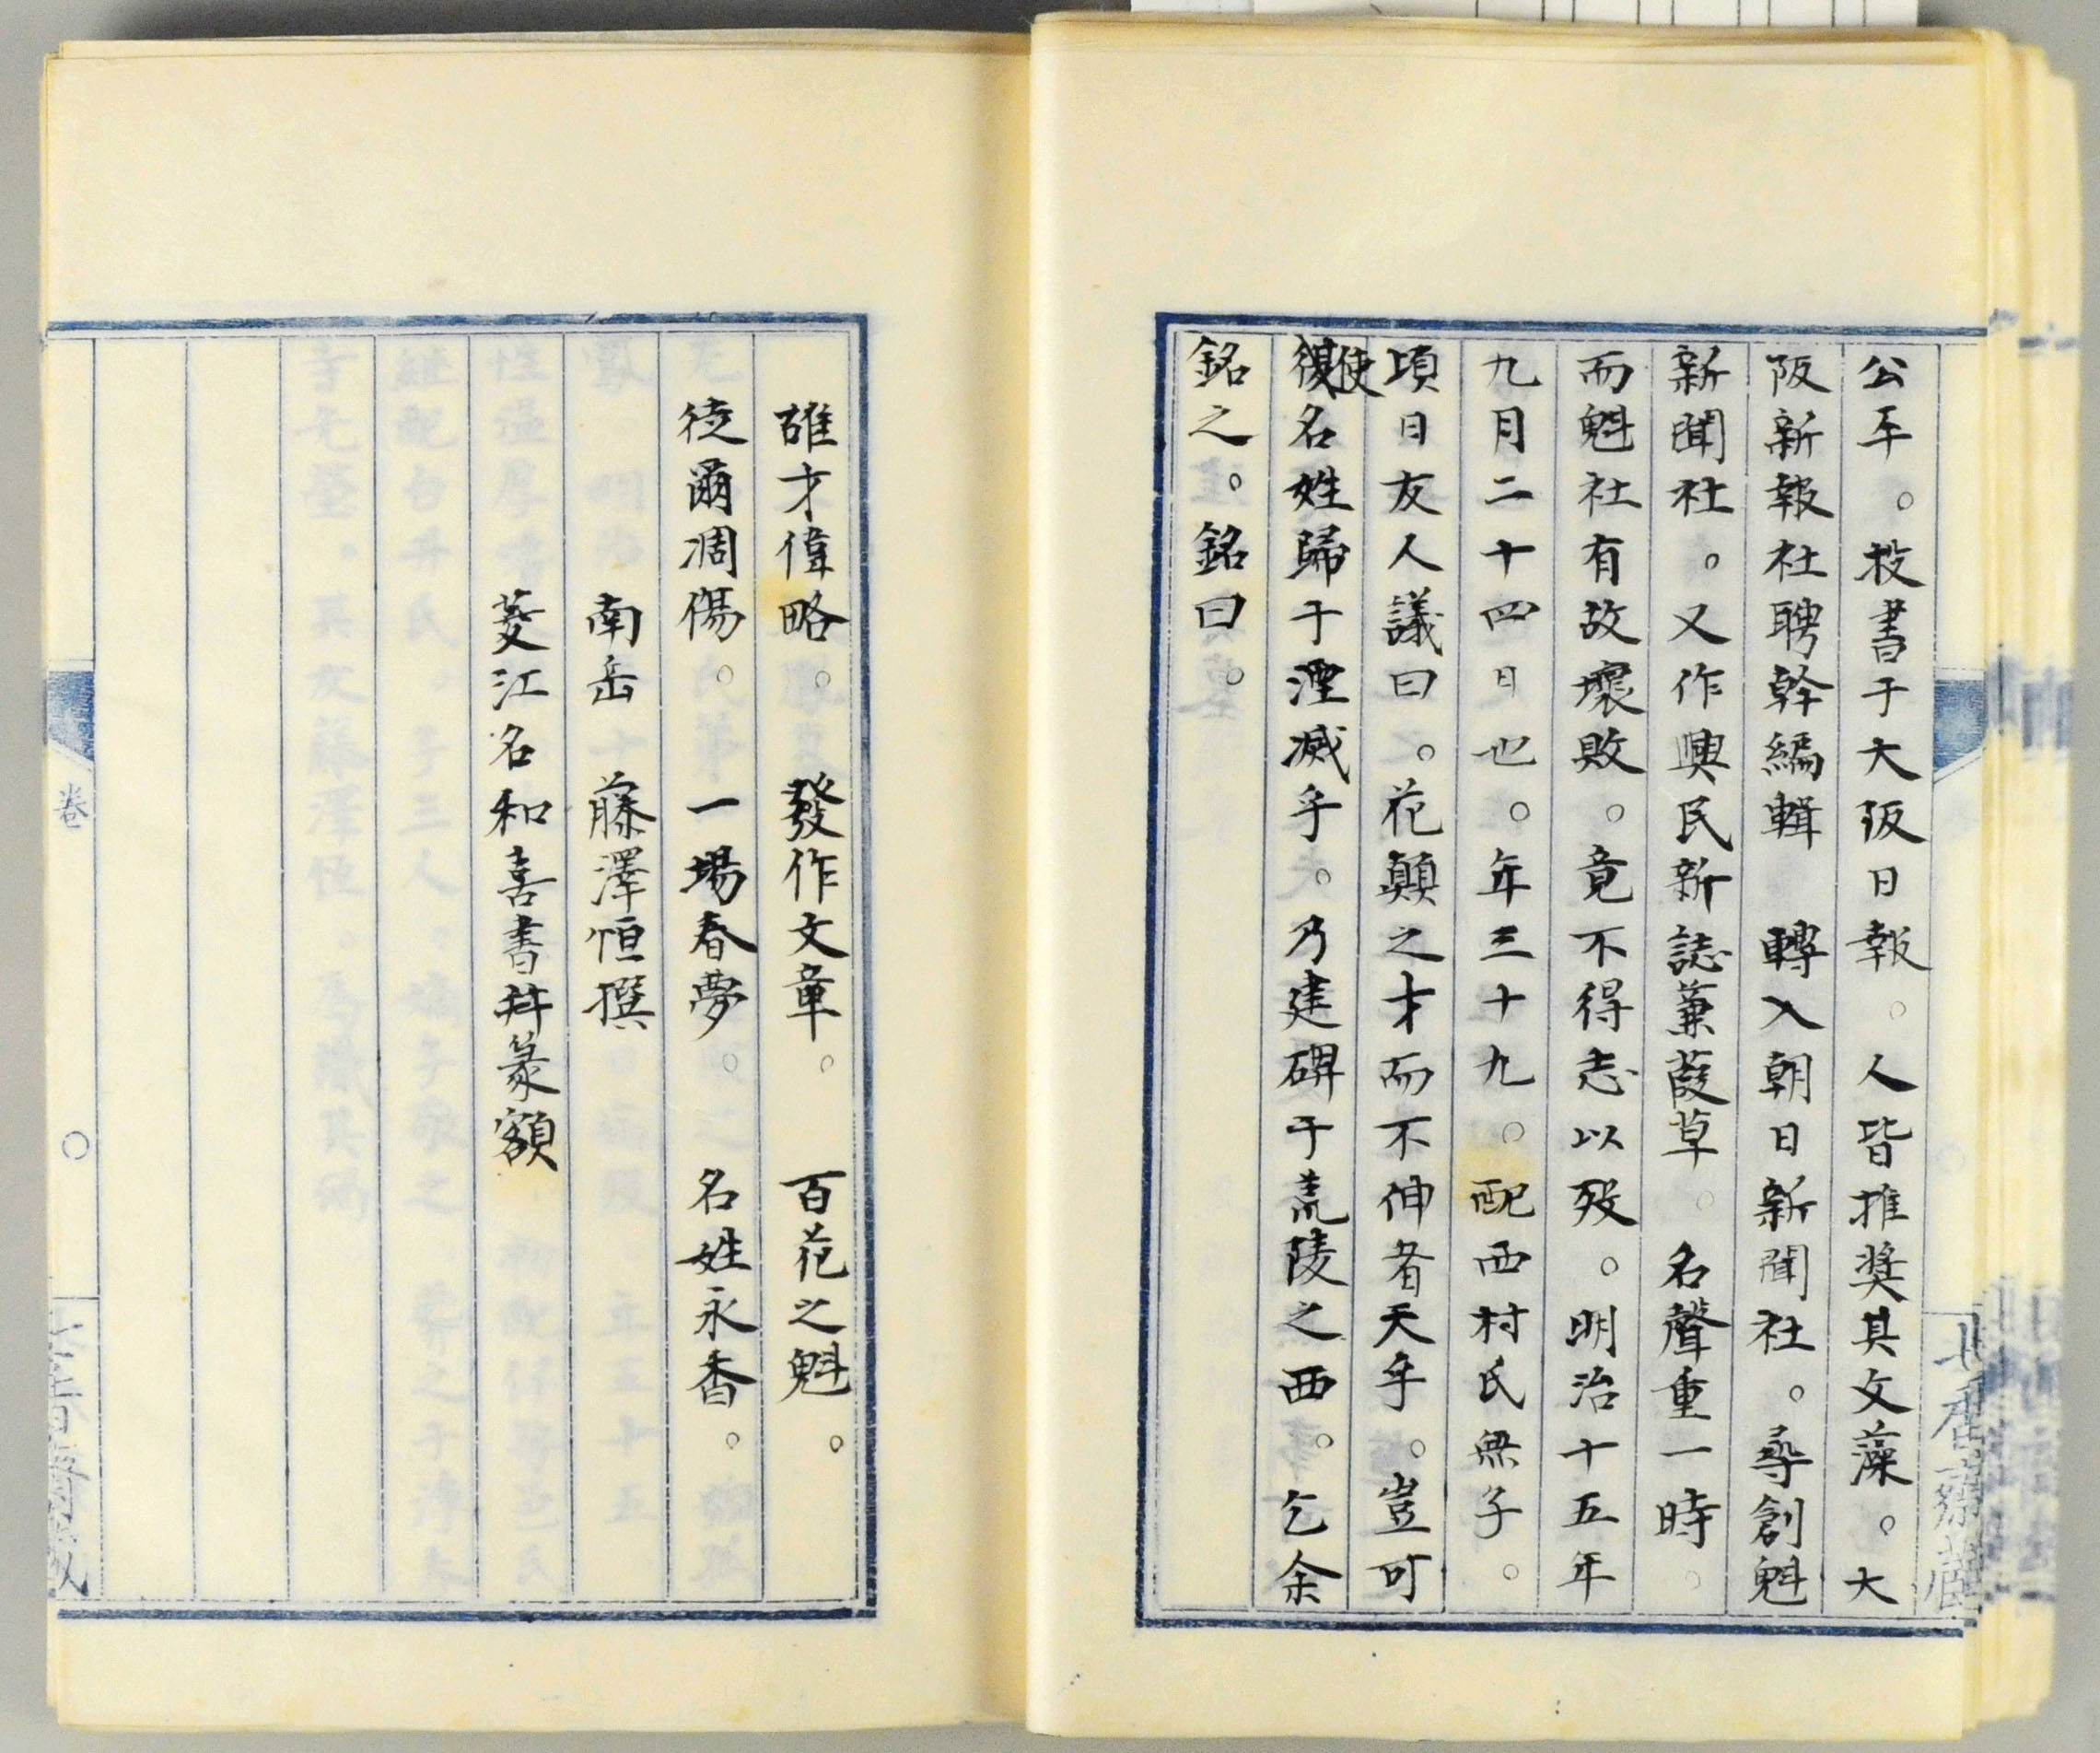 公平。投書于大阪日報。人皆推奬其文藻。大
阪新報社聘幹編輯 轉入朝日新聞社。尋創魁
新聞社。又作興民新誌蒹葭草。名聲重一時。
而魁社有故壞敗。竟不得志以歿。明治十五年
九月二十四日也。年三十九。配西村氏無子。
頃日友人議曰。花顛之才而不伸者天乎。豈可
使
復名姓歸于湮滅乎。乃建碑于荒陵之西。乞余
銘之。銘曰。
雄才偉略。 發作文章。 百花之魁。
徒爾凋傷。 一場春夢。 名姓永香。
南岳 藤澤恒撰
菱江名和喜書幷篆額
卷